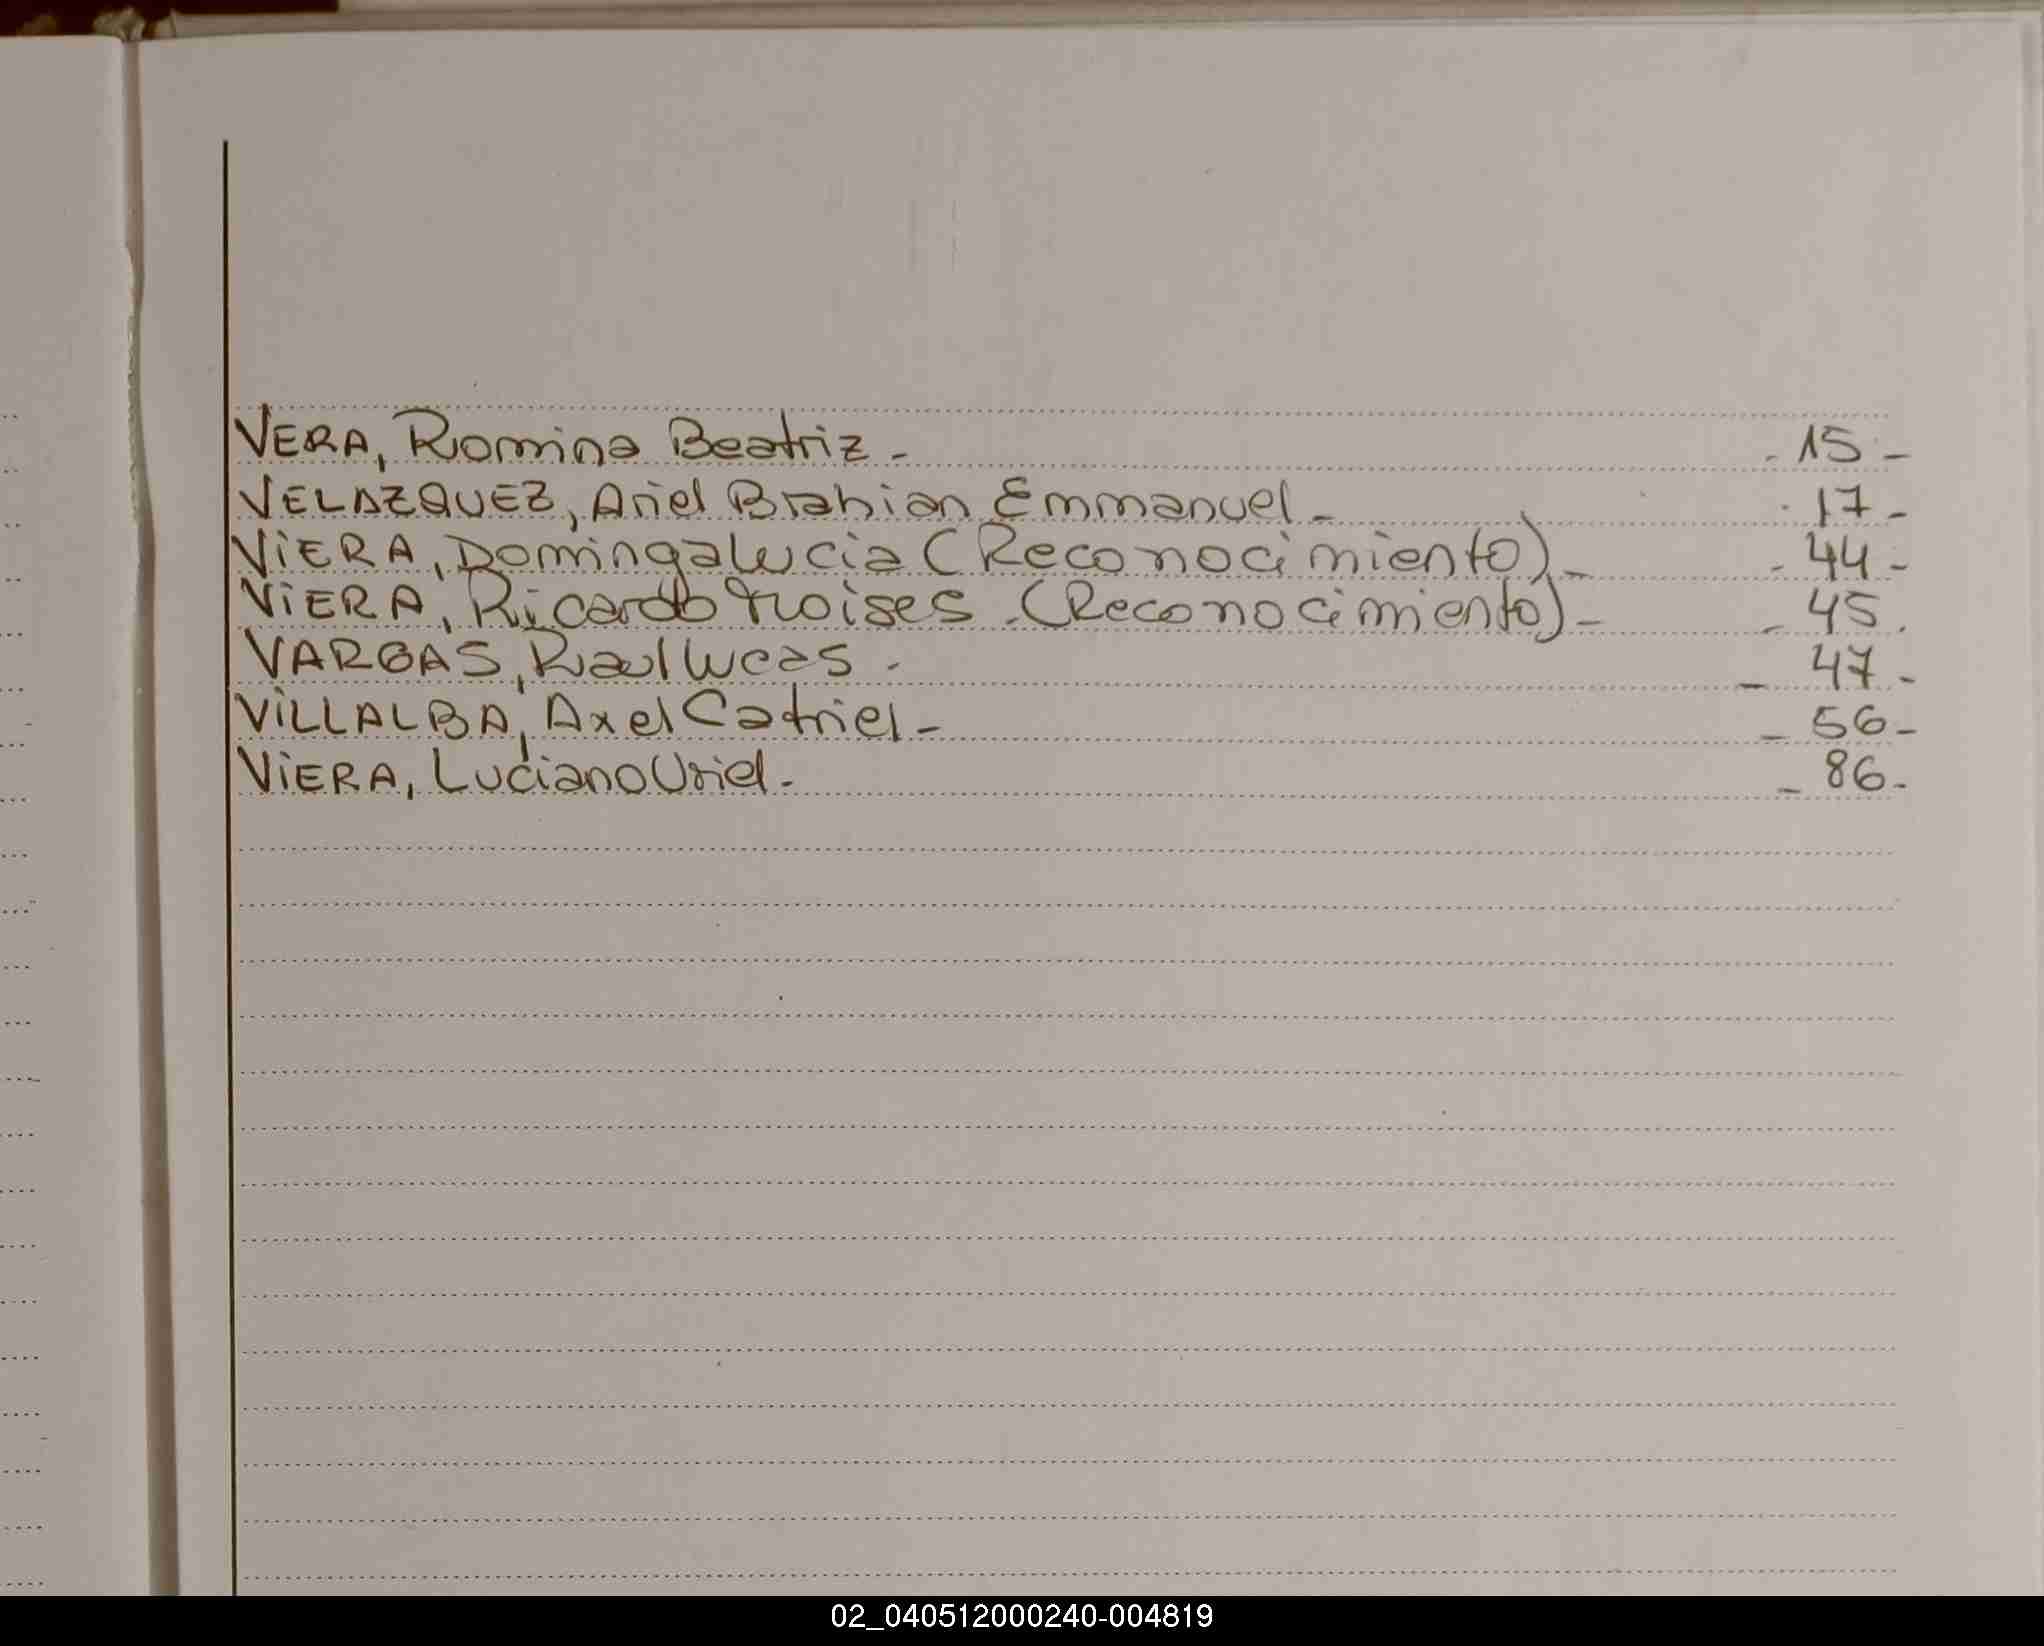 VERA, Romina Beatriz - - 15 -
VELAZQUEZ, Ariel Brahian Emmanuel - - 17 -
ViERA, Dominga Lucia (Reconocimiento) - - 44 -
ViERA, Ricardo Moises - (Reconocimiento) - - 45.
VARGAS, Raul Lucas - - 47 -
ViLLALBA, Axel Catriel - - 56 -
ViERA, Luciano Uriel - - 86 -
02_040512000240-004819